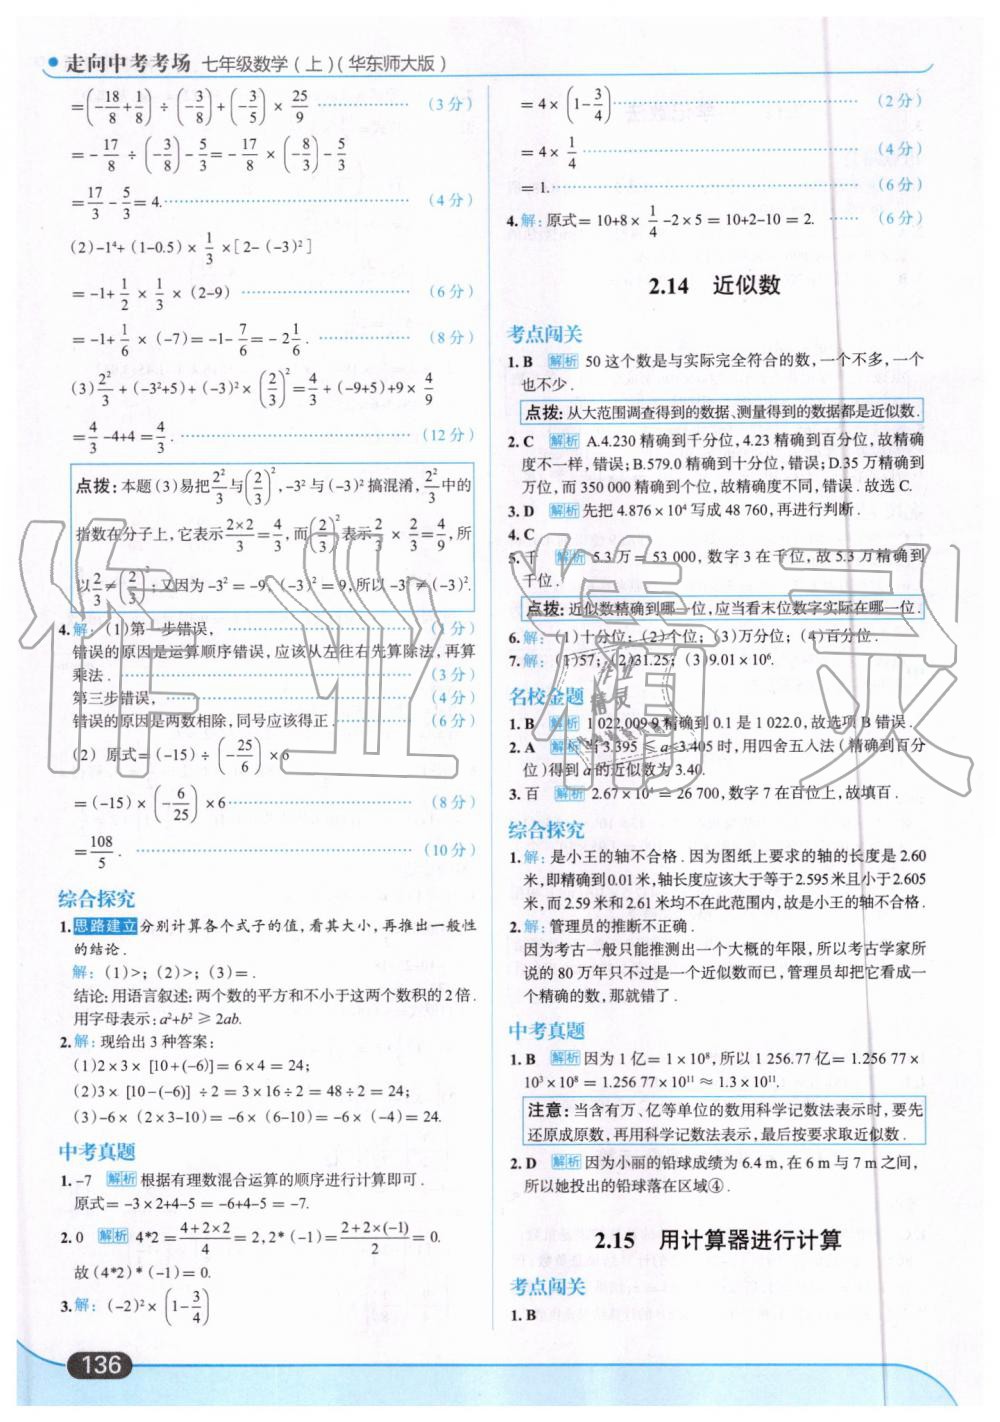 走向中考考场 七年级数学(上)(华东师大版)
=(-18/8+1/8)÷(-3/8)+(-3/5)×25/9 ……(3分)
=-17/8÷(-3/8)-5/3=-17/8×(-8/3)-5/3
=17/3-5/3=4.……(4分)
(2)-1⁴+(1-0.5)×1/3×[2-(-3)²]
=-1+1/2×1/3×(2-9)……(6分)
=-1+1/6×(-7)=-1-7/6=-2 1/6.……(8分)
(3)2²/3+(-3²+5)+(-3)²×(2/3)²=4/3+(-9+5)+9×4/9
=4/3-4+4=4/3.……(12分)
点拨:本题(3)易把2²/3与(2/3)²,-3²与(-3)²搞混淆,2²/3中的
指数在分子上,它表示2×2/3=4/3,而(2/3)²表示2/3×2/3=4/9,所
以2²/3≠(2/3)²;又因为-3²=-9,(-3)²=9,所以-3²≠(-3)².
4.解:(1)第一步错误,……(1分)
错误的原因是运算顺序错误,应该从左往右先算除法,再算
乘法.……(3分)
第三步错误,……(4分)
错误的原因是两数相除,同号应该得正.……(6分)
(2)原式=(-15)÷(-25/6)×6
=(-15)×(-6/25)×6……(8分)
=108/5.……(10分)
综合探究
1.思路建立 分别计算各个式子的值,看其大小,再推出一般性
的结论.
解:(1)>;(2)>;(3)=.
结论:用语言叙述:两个数的平方和不小于这两个数积的2倍.
用字母表示:a²+b²≥2ab.
2.解:现给出3种答案:
(1)2×3×[10+(-6)]=6×4=24;
(2)3×[10-(-6)]÷2=3×16÷2=48÷2=24;
(3)-6×(2×3-10)=-6×(6-10)=-6×(-4)=24.
中考真题
1.-7 解析 根据有理数混合运算的顺序进行计算即可.
原式=-3×2+4-5=-6+4-5=-7.
2.0 解析 4*2=4+2×2/4=2,2*(-1)=2+2×(-1)/2=0.
故(4*2)*(-1)=0.
3.解:(-2)²×(1-3/4)
=4×(1-3/4)……(2分)
=4×1/4……(4分)
=1.……(6分)
4.解:原式=10+8×1/4-2×5=10+2-10=2.……(6分)
2.14 近似数
考点闯关
1.B 解析 50这个数是与实际完全符合的数,一个不多,一个
也不少.
点拨:从大范围调查得到的数据、测量得到的数据都是近似数.
2.C 解析 A.4.230精确到千分位,4.23精确到百分位,故精确
度不一样,错误;B.579.0精确到十分位,错误;D.35万精确到
万位,而350 000精确到个位,故精确度不同,错误.故选C.
3.D 解析 先把4.876×10⁴写成48 760,再进行判断.
4.C
5.千 解析 5.3万=53 000,数字3在千位,故5.3万精确到
千位.
点拨:近似数精确到哪一位,应当看末位数字实际在哪一位.
6.解:(1)十分位;(2)个位;(3)万分位;(4)百分位.
7.解:(1)57;(2)31.25;(3)9.01×10⁶.
名校金题
1.B 解析 1 022.009 9精确到0.1是1 022.0,故选项B错误.
2.A 解析 当3.395≤a<3.405时,用四舍五入法(精确到百分
位)得到a的近似数为3.40.
3.百 解析 2.67×10⁴=26 700,数字7在百位上,故填百.
综合探究
1.解:是小王的轴不合格.因为图纸上要求的轴的长度是2.60
米,即精确到0.01米,轴长度应该大于等于2.595米且小于2.605
米,而2.59米和2.61米均不在此范围内,故是小王的轴不合格.
2.解:管理员的推断不正确.
因为考古一般只能推测出一个大概的年限,所以考古学家所
说的80万年只不过是一个近似数而已,管理员却把它看成一
个精确的数,那就错了.
中考真题
1.B 解析 因为1亿=1×10⁸,所以1 256.77亿=1.256 77×
10³×10⁸=1.256 77×10¹¹≈1.3×10¹¹.
注意:当含有万、亿等单位的数用科学记数法表示时,要先
还原成原数,再用科学记数法表示,最后按要求取近似数.
2.D 解析 因为小丽的铅球成绩为6.4 m,在6 m与7 m之间,
所以她投出的铅球落在区域④.
2.15 用计算器进行计算
考点闯关
1.B
136
作业精灵